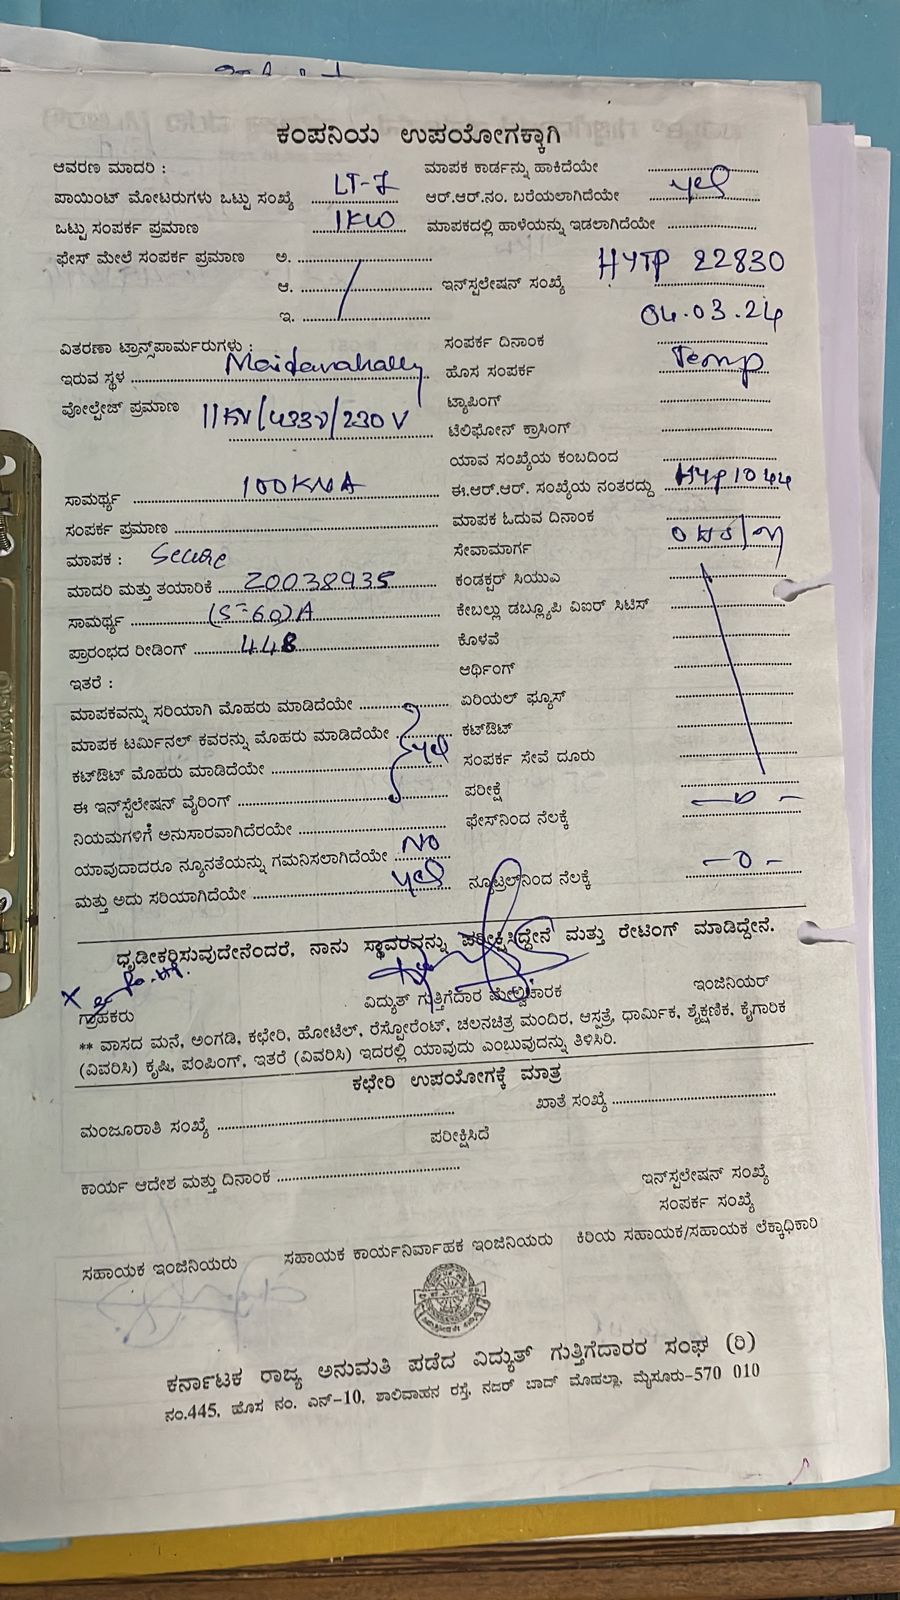 ಕಂಪನಿಯ ಉಪಯೋಗಕ್ಕಾಗಿ
ಆವರಣ ಮಾದರಿ : ಮಾಪಕ ಕಾರ್ಡನ್ನು ಹಾಕಿದೆಯೇ
ಪಾಯಿಂಟ್ ಮೋಟರುಗಳು ಒಟ್ಟು ಸಂಖ್ಯೆ LT-7 ಆರ್.ಆರ್.ನಂ. ಬರೆಯಲಾಗಿದೆಯೇ yes
ಒಟ್ಟು ಸಂಪರ್ಕ ಪ್ರಮಾಣ 1KW ಮಾಪಕದಲ್ಲಿ ಹಾಳೆಯನ್ನು ಇಡಲಾಗಿದೆಯೇ
ಫೇಸ್ ಮೇಲೆ ಸಂಪರ್ಕ ಪ್ರಮಾಣ ಅ.
ಆ. ಇನ್‌ಸ್ಪಲೇಷನ್ ಸಂಖ್ಯೆ HYTP 22830
ಇ. 04.03.24
ವಿತರಣಾ ಟ್ರಾನ್ಸ್‌ಪಾರ್ಮರುಗಳು : ಸಂಪರ್ಕ ದಿನಾಂಕ
ಇರುವ ಸ್ಥಳ Maidanahally ಹೊಸ ಸಂಪರ್ಕ Temp
ವೋಲ್ಟೇಜ್ ಪ್ರಮಾಣ 11KV/433V/230V ಟ್ಯಾಪಿಂಗ್
ಟೆಲಿಫೋನ್ ಕ್ರಾಸಿಂಗ್
ಯಾವ ಸಂಖ್ಯೆಯ ಕಂಬದಿಂದ
ಸಾಮರ್ಥ್ಯ 100KVA ಈ.ಆರ್.ಆರ್. ಸಂಖ್ಯೆಯ ನಂತರದ್ದು HYP1044
ಸಂಪರ್ಕ ಪ್ರಮಾಣ ಮಾಪಕ ಓದುವ ದಿನಾಂಕ
ಮಾಪಕ : Secure ಸೇವಾಮಾರ್ಗ
ಮಾದರಿ ಮತ್ತು ತಯಾರಿಕೆ 20038935 ಕಂಡಕ್ಟರ್ ಸಿಯುಎ
ಸಾಮರ್ಥ್ಯ (5-60)A ಕೇಬಲ್ಲು ಡಬ್ಲ್ಯೂಪಿ ವಿಐರ್ ಸಿಟಿಸ್
ಪ್ರಾರಂಭದ ರೀಡಿಂಗ್ 448 ಕೊಳವೆ
ಇತರೆ : ಆರ್ಥಿಂಗ್
ಮಾಪಕವನ್ನು ಸರಿಯಾಗಿ ಮೊಹರು ಮಾಡಿದೆಯೇ ಏರಿಯಲ್ ಫ್ಯೂಸ್
ಮಾಪಕ ಟರ್ಮಿನಲ್ ಕವರನ್ನು ಮೊಹರು ಮಾಡಿದೆಯೇ ಕಟ್‌ಔಟ್
ಕಟ್‌ಔಟ್ ಮೊಹರು ಮಾಡಿದೆಯೇ yes ಸಂಪರ್ಕ ಸೇವೆ ದೂರು
ಈ ಇನ್‌ಸ್ಪೆಲೇಷನ್ ವೈರಿಂಗ್ ಪರೀಕ್ಷೆ
ನಿಯಮಗಳಿಗೆ ಅನುಸಾರವಾಗಿದೆರಯೇ ಫೇಸ್‌ನಿಂದ ನೆಲಕ್ಕೆ —0—
ಯಾವುದಾದರೂ ನ್ಯೂನತೆಯನ್ನು ಗಮನಿಸಲಾಗಿದೆಯೇ No
ಮತ್ತು ಅದು ಸರಿಯಾಗಿದೆಯೇ yes ನ್ಯೂಟ್ರಲ್‌ನಿಂದ ನೆಲಕ್ಕೆ —0—
ಧೃಡೀಕರಿಸುವುದೇನೆಂದರೆ, ನಾನು ಸ್ಥಾವರವನ್ನು ಪರೀಕ್ಷಿಸಿದ್ದೇನೆ ಮತ್ತು ರೇಟಿಂಗ್ ಮಾಡಿದ್ದೇನೆ.
ಗ್ರಾಹಕರು ವಿದ್ಯುತ್ ಗುತ್ತಿಗೆದಾರ ಮೇಲ್ವಿಚಾರಕ ಇಂಜಿನಿಯರ್
** ವಾಸದ ಮನೆ, ಅಂಗಡಿ, ಕಛೇರಿ, ಹೋಟೆಲ್, ರೆಸ್ಟೋರೆಂಟ್, ಚಲನಚಿತ್ರ ಮಂದಿರ, ಆಸ್ಪತ್ರೆ, ಧಾರ್ಮಿಕ, ಶೈಕ್ಷಣಿಕ, ಕೈಗಾರಿಕ
(ವಿವರಿಸಿ) ಕೃಷಿ, ಪಂಪಿಂಗ್, ಇತರೆ (ವಿವರಿಸಿ) ಇದರಲ್ಲಿ ಯಾವುದು ಎಂಬುವುದನ್ನು ತಿಳಿಸಿರಿ.
ಕಛೇರಿ ಉಪಯೋಗಕ್ಕೆ ಮಾತ್ರ
ಮಂಜೂರಾತಿ ಸಂಖ್ಯೆ ಖಾತೆ ಸಂಖ್ಯೆ
ಪರೀಕ್ಷಿಸಿದೆ
ಕಾರ್ಯ ಆದೇಶ ಮತ್ತು ದಿನಾಂಕ ಇನ್‌ಸ್ಪಲೇಷನ್ ಸಂಖ್ಯೆ
ಸಂಪರ್ಕ ಸಂಖ್ಯೆ
ಸಹಾಯಕ ಇಂಜಿನಿಯರು ಸಹಾಯಕ ಕಾರ್ಯನಿರ್ವಾಹಕ ಇಂಜಿನಿಯರು ಕಿರಿಯ ಸಹಾಯಕ/ಸಹಾಯಕ ಲೆಕ್ಕಾಧಿಕಾರಿ
ಕರ್ನಾಟಕ ರಾಜ್ಯ ಅನುಮತಿ ಪಡೆದ ವಿದ್ಯುತ್ ಗುತ್ತಿಗೆದಾರರ ಸಂಘ (ರಿ)
ನಂ.445, ಹೊಸ ನಂ. ಎನ್-10, ಶಾಲಿವಾಹನ ರಸ್ತೆ, ನಜರ್ ಬಾದ್ ಮೊಹಲ್ಲಾ, ಮೈಸೂರು-570 010